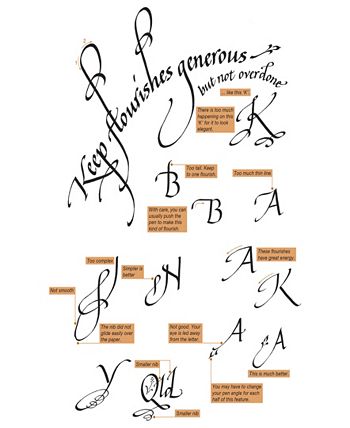 Keep flourishes generous
but not overdone
... like this 'K'
There is too much
happening on this
'K' for it to look
elegant.
K
Too tall. Keep
to one flourish.
Too much thin line
B
B
A
With care, you can
usually push the
pen to make this
kind of flourish.
Too complex
Simpler is
better
N
A
These flourishes
have great energy.
K
Not smooth
The nib did not
glide easily over
the paper.
Not good. Your
eye is led away
from the letter.
A
A
This is much better.
You may have to change
your pen angle for each
half of this feature.
Smaller nib
y
Qld
Smaller nib